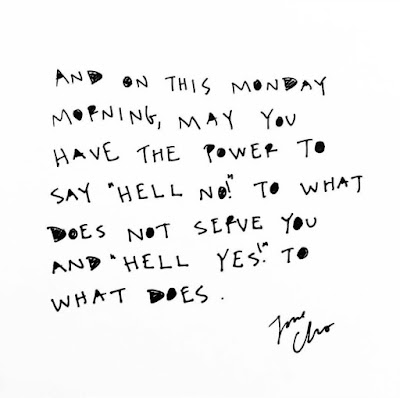 AND ON THIS MONDAY
MORNING, MAY YOU
HAVE THE POWER TO
SAY "HELL NO!" TO WHAT
DOES NOT SERVE YOU
AND "HELL YES!" TO
WHAT DOES.